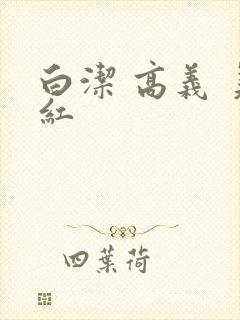 白潔 高義
紅
四葉荷